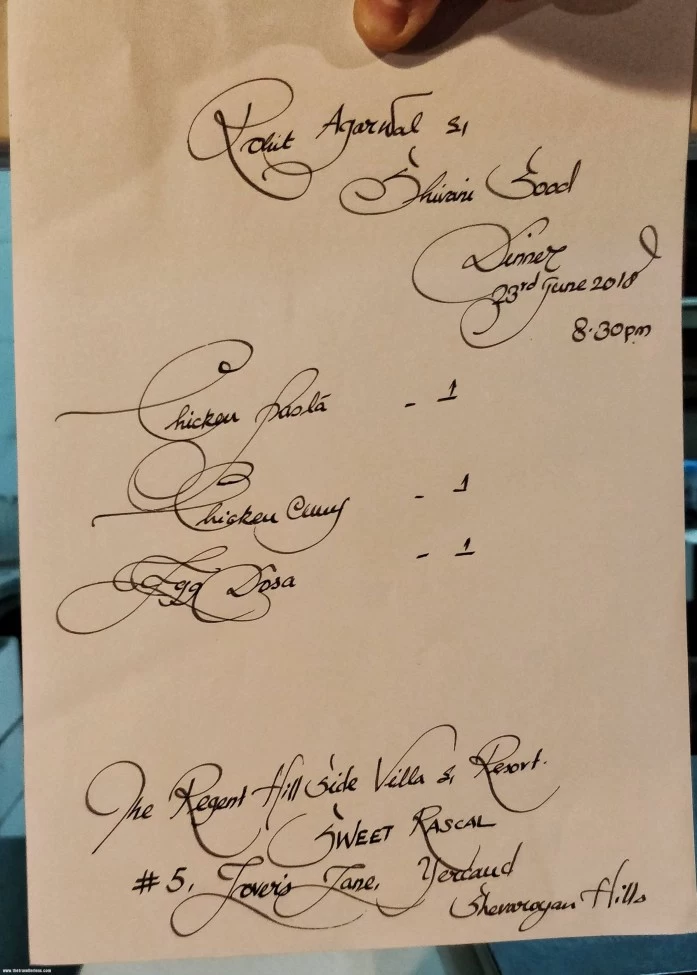 Rohit Agarwal &
Shivani Sood
Dinner
23rd June 2018
8.30pm
Chicken pasta - 1
Chicken Curry - 1
Egg Dosa - 1
The Regent Hill Side Villa & Resort.
SWEET RASCAL
#5, Lover's Lane, Yercaud
Shevaroyan Hills